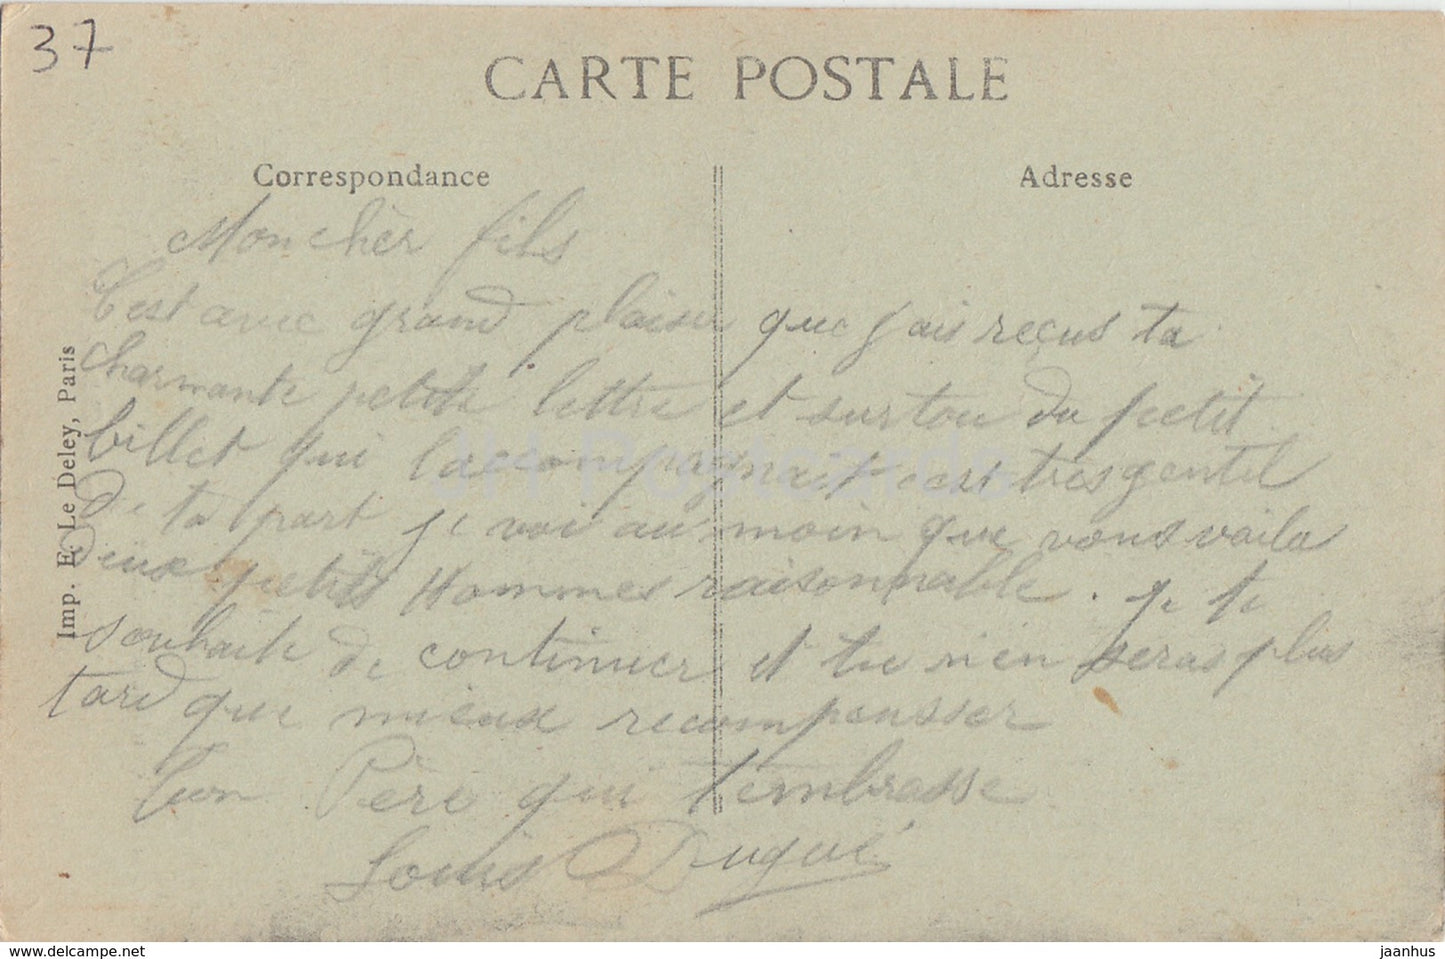 37
CARTE POSTALE
Correspondance
Adresse
Mon chèr fils
C'est avec grand plaisir que j'ais reçus ta
charmante petite lettre et surtou du petit
billet qui l'accompagnait c'est très gentil
de ta part je voi au moin que vous voila
deux petits Hommes raisonnable. je te
souhaite de continuer et tu n'en seras plus
tard que mieux recompensser
Ton Père qui t'embrasse
Louis Dugué
Imp. E. Le Deley, Paris
JH Postcards
www.delcampe.net
jaanhus